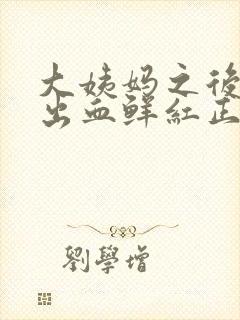 大姨妈之後
出血鲜红正
劉學增